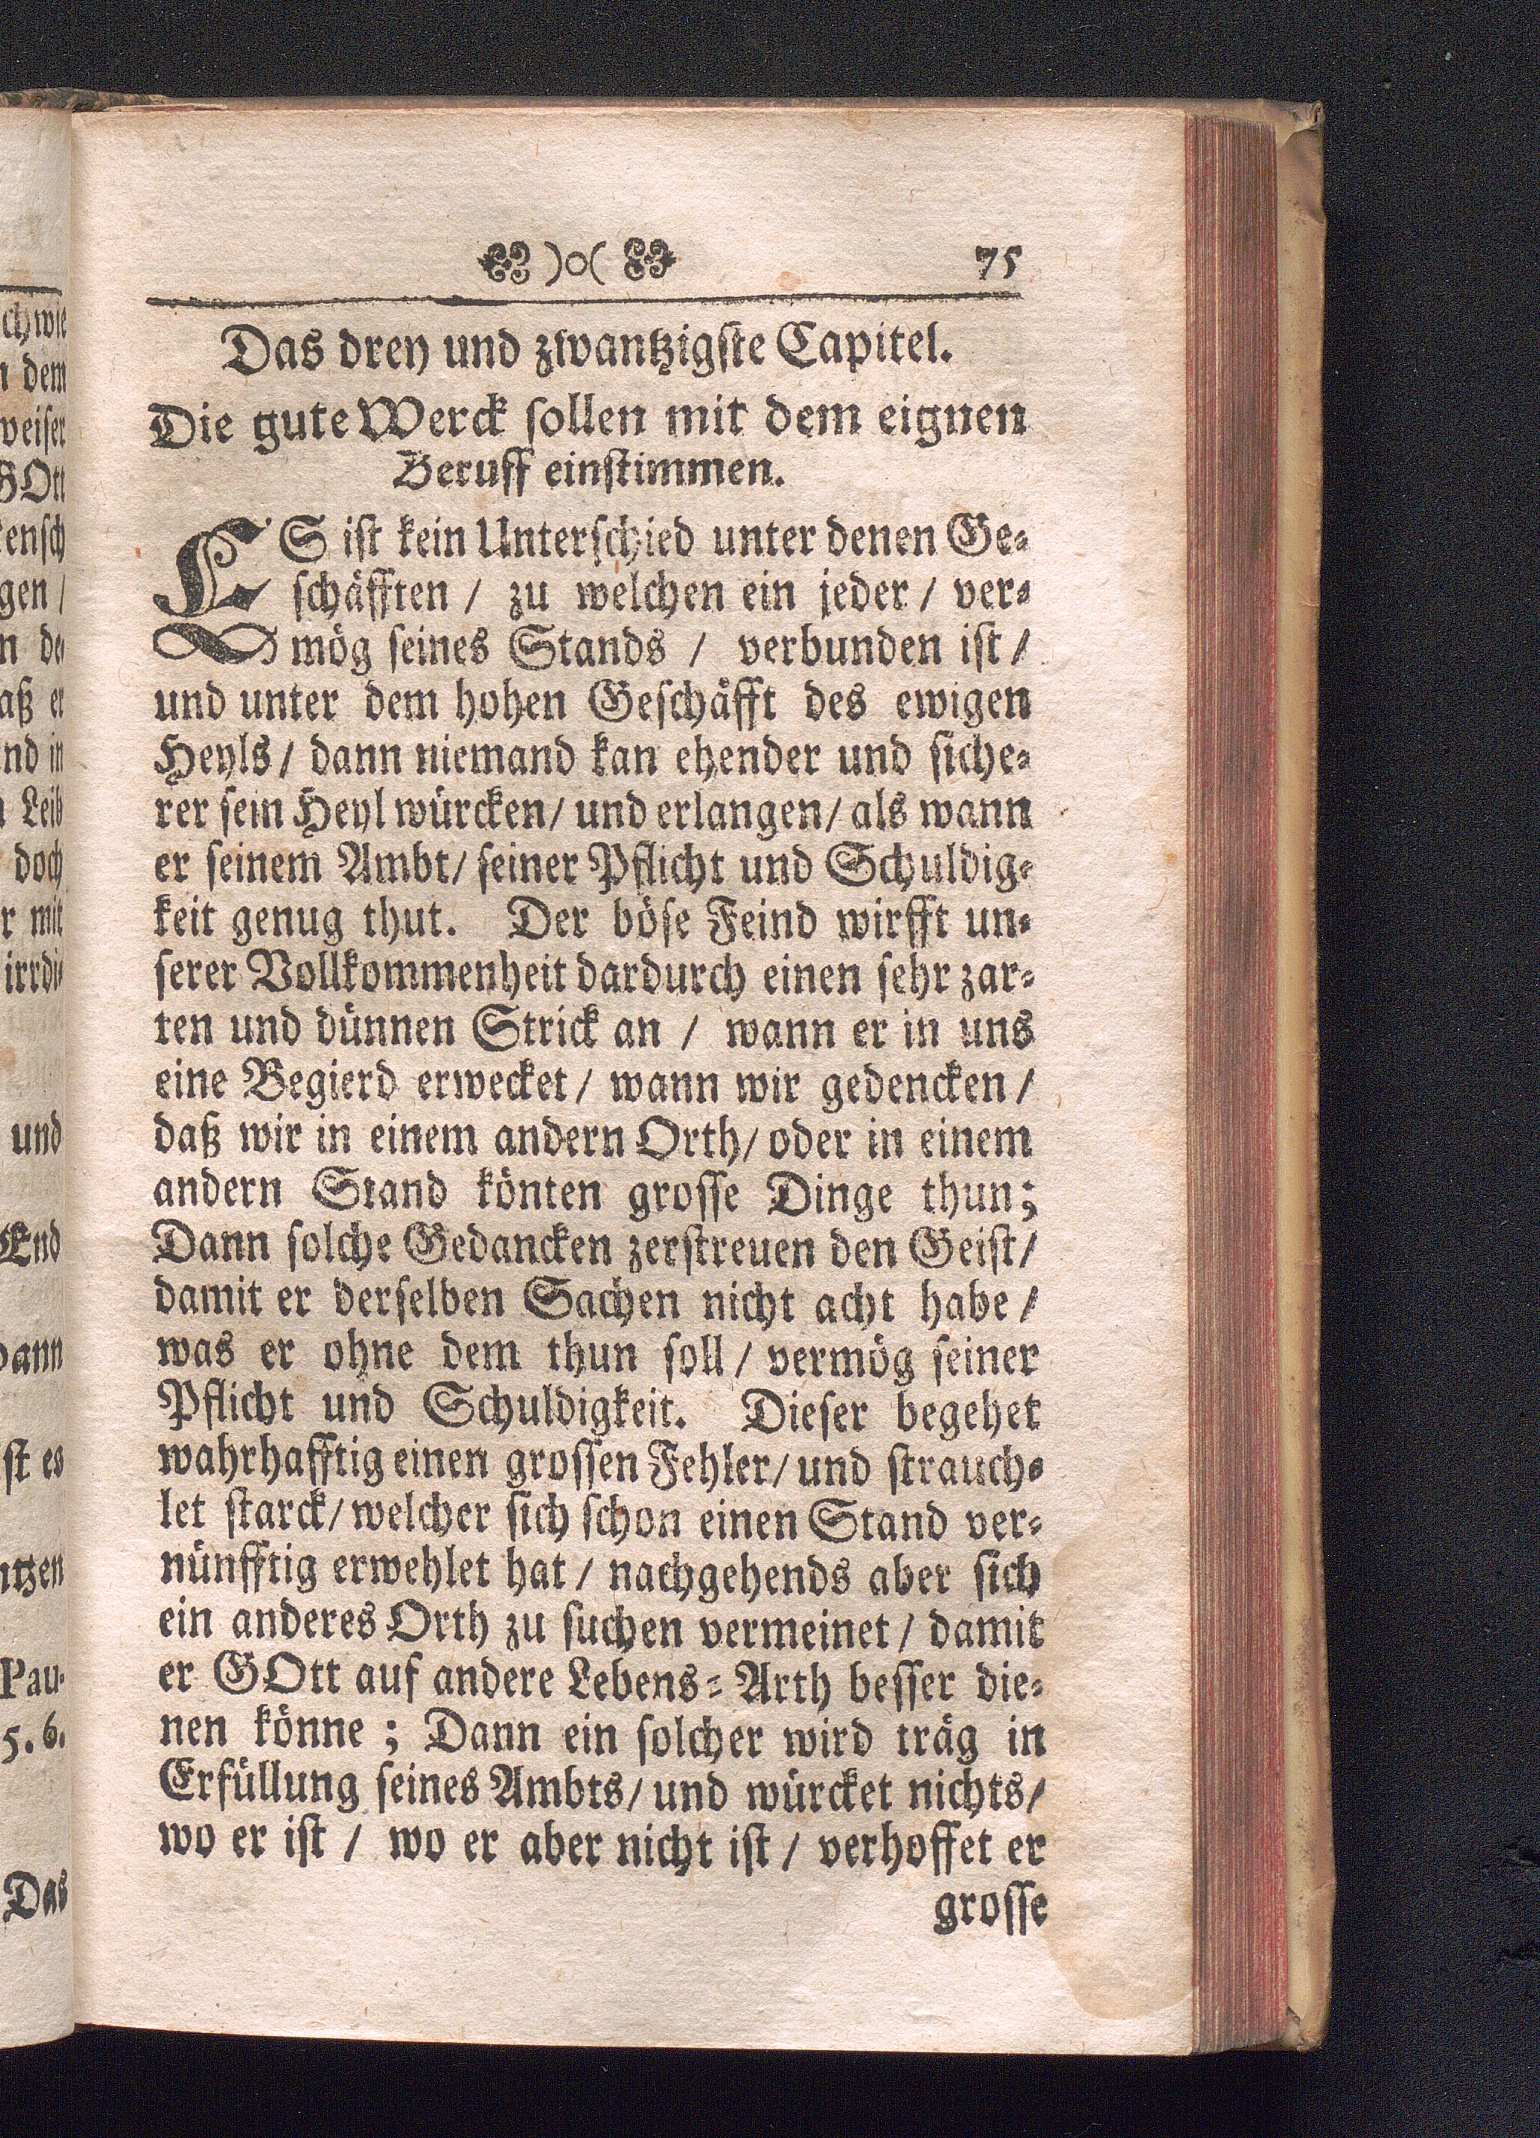 )o( 75
Das drey und zwantzigste Capitel.
Die gute Werck sollen mit dem eignen
Beruff einstimmen.
ES ist kein Unterschied unter denen Ge-
schäfften / zu welchen ein jeder / ver-
mög seines Stands / verbunden ist /
und unter dem hohen Geschäfft des ewigen
Heyls / dann niemand kan ehender und siche-
rer sein Heyl würcken / und erlangen / als wann
er seinem Ambt / seiner Pflicht und Schuldig-
keit genug thut. Der böse Feind wirfft un-
serer Vollkommenheit dardurch einen sehr zar-
ten und dünnen Strick an / wann er in uns
eine Begierd erwecket / wann wir gedencken /
daß wir in einem andern Orth / oder in einem
andern Stand könten grosse Dinge thun;
Dann solche Gedancken zerstreuen den Geist /
damit er derselben Sachen nicht acht habe /
was er ohne dem thun soll / vermög seiner
Pflicht und Schuldigkeit. Dieser begehet
wahrhafftig einen grossen Fehler / und strauch-
let starck / welcher sich schon einen Stand ver-
nünfftig erwehlet hat / nachgehends aber sich
ein anderes Orth zu suchen vermeinet / damit
er GOtt auf andere Lebens-Arth besser die-
nen könne ; Dann ein solcher wird träg in
Erfüllung seines Ambts / und würcket nichts /
wo er ist / wo er aber nicht ist / verhoffet er
grosse